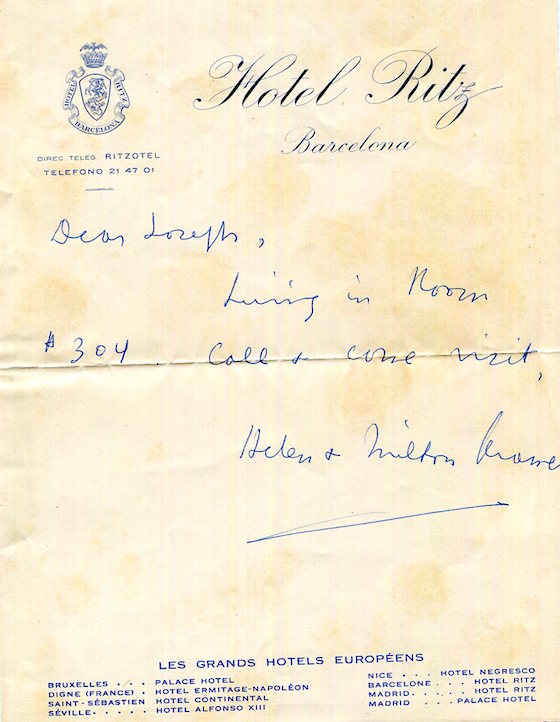 Hotel Ritz
Barcelona
HOTEL RITZ
BARCELONA
DIREC. TELEG. RITZOTEL
TELEFONO 21 47 01
Dear Joseph,
Living in Room
# 304. Call & come visit,
Helen & Milton
LES GRANDS HOTELS EUROPÉENS
BRUXELLES . . . PALACE HOTEL
DIGNE (FRANCE) . HOTEL ERMITAGE-NAPOLÉON
SAINT-SÉBASTIEN HOTEL CONTINENTAL
SÉVILLE . . . . . HOTEL ALFONSO XIII
NICE . . . HOTEL NEGRESCO
BARCELONE . . . HOTEL RITZ
MADRID . . . . . HOTEL RITZ
MADRID . . . . PALACE HOTEL